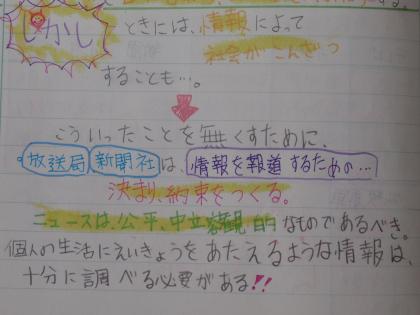 しかし ときには、情報によって
社会がこんざつ
することも…。
こういったことを無くすために、
放送局 新聞社は、情報を報道するための…
決まり、約束をつくる。
ニュースは、公平、中立 客観的なものであるべき。
個人の生活にえいきょうをあたえるような情報は、
十分に調べる必要がある!!